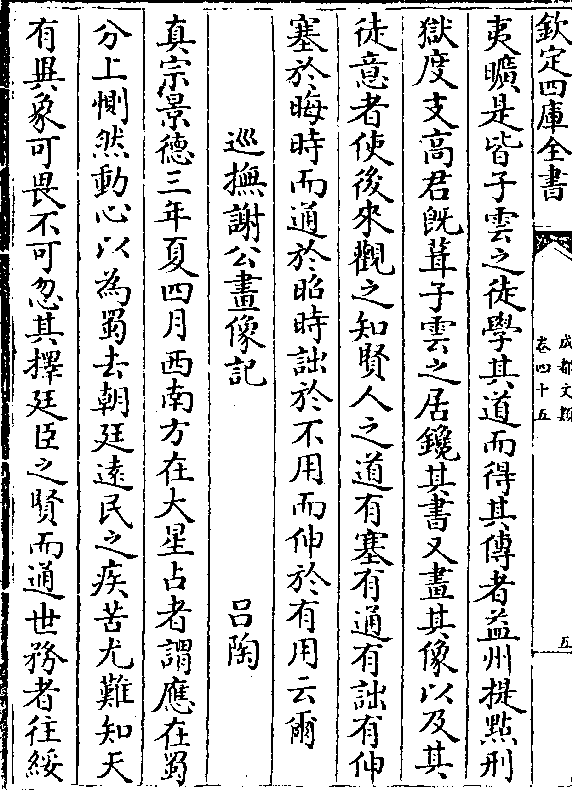 欽定四庫全書
成都文類
卷四十五
五
夷曠是皆子雲之徒學其道而得其傳者益州提點刑
獄度支高君既葺子雲之居鑱其書又畫其像以及其
徒意者使後來觀之知賢人之道有塞有通有詘有伸
塞於晦時而通於昭時詘於不用而伸於有用云爾
巡撫謝公畫像記 呂陶
真宗景德三年夏四月西南方在大星占者謂應在蜀
分上惻然動心以為蜀去朝廷遠民之疾苦尤難知天
有異象可畏不可忽其擇廷臣之賢而通世務者往綏